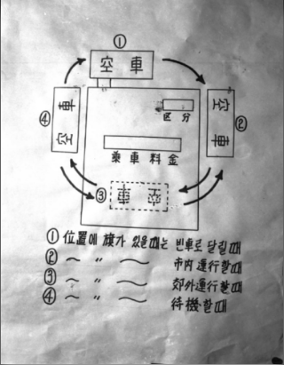 ①
空車
④
空車
區分
②
空車
乘車料金
③
空車
① 位置에 旗가 있을때는 빈車로 달릴때
② 〜 〃 〜 市內運行할때
③ 〜 〃 〜 郊外運行할때
④ 〜 〃 〜 待機할때